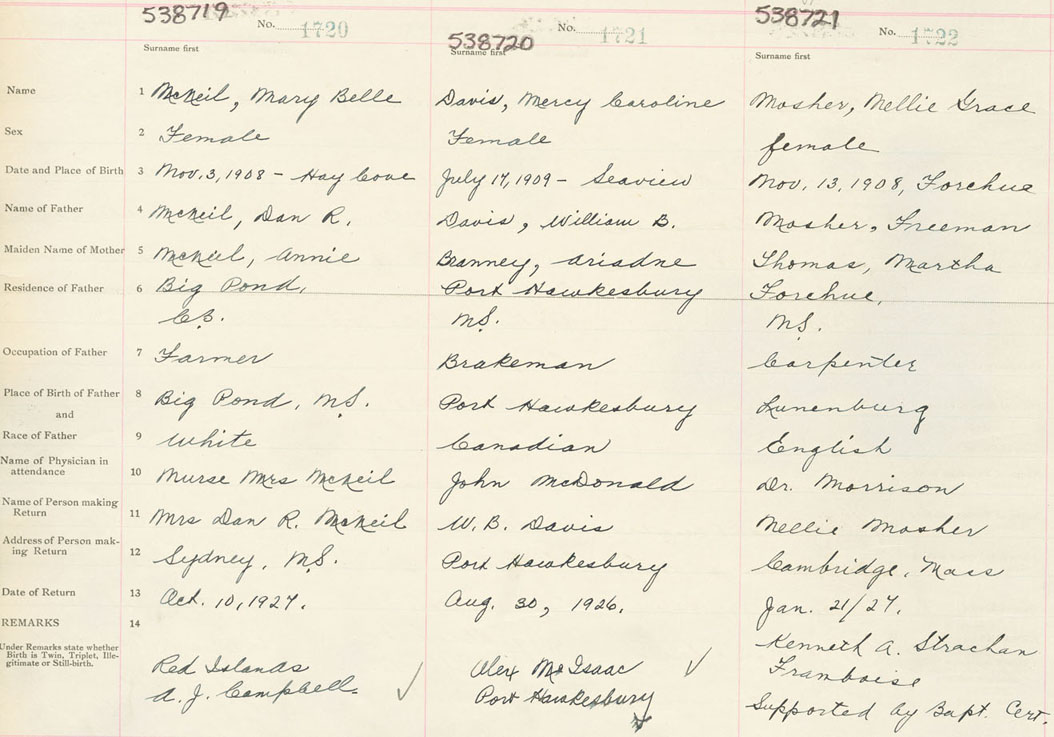 538719 No. 1720 538720 No. 1721 538721 No. 1722
Surname first Surname first Surname first
Name 1 McNeil, Mary Belle Davis, Mercy Caroline Mosher, Nellie Grace
Sex 2 Female Female female
Date and Place of Birth 3 Nov. 3, 1908 - Hay Cove July 17, 1909 - Seaview Nov. 13, 1908, Forchue
Name of Father 4 McNeil, Dan R. Davis, William B. Mosher, Freeman
Maiden Name of Mother 5 McNeil, Annie Branney, Ariadne Thomas, Martha
Residence of Father 6 Big Pond, Port Hawkesbury Forchue,
C.B. N.S. N.S.
Occupation of Father 7 Farmer Brakeman Carpenter
Place of Birth of Father 8 Big Pond, N.S. Port Hawkesbury Lunenburg
and
Race of Father 9 White Canadian English
Name of Physician in
attendance 10 Nurse Mrs McNeil John McDonald Dr. Morrison
Name of Person making
Return 11 Mrs Dan R. McNeil W. B. Davis Nellie Mosher
Address of Person mak-
ing Return 12 Sydney, N.S. Port Hawkesbury Cambridge, Mass
Date of Return 13 Oct. 10, 1927. Aug. 30, 1926. Jan. 21/27.
REMARKS 14
Under Remarks state whether
Birth is Twin, Triplet, Ille-
gitimate or Still-birth.
Red Islands Alex McIsaac Kenneth A. Strachan
A. J. Campbell. Port Hawkesbury Framboise
Supported by Bapt. Cert.